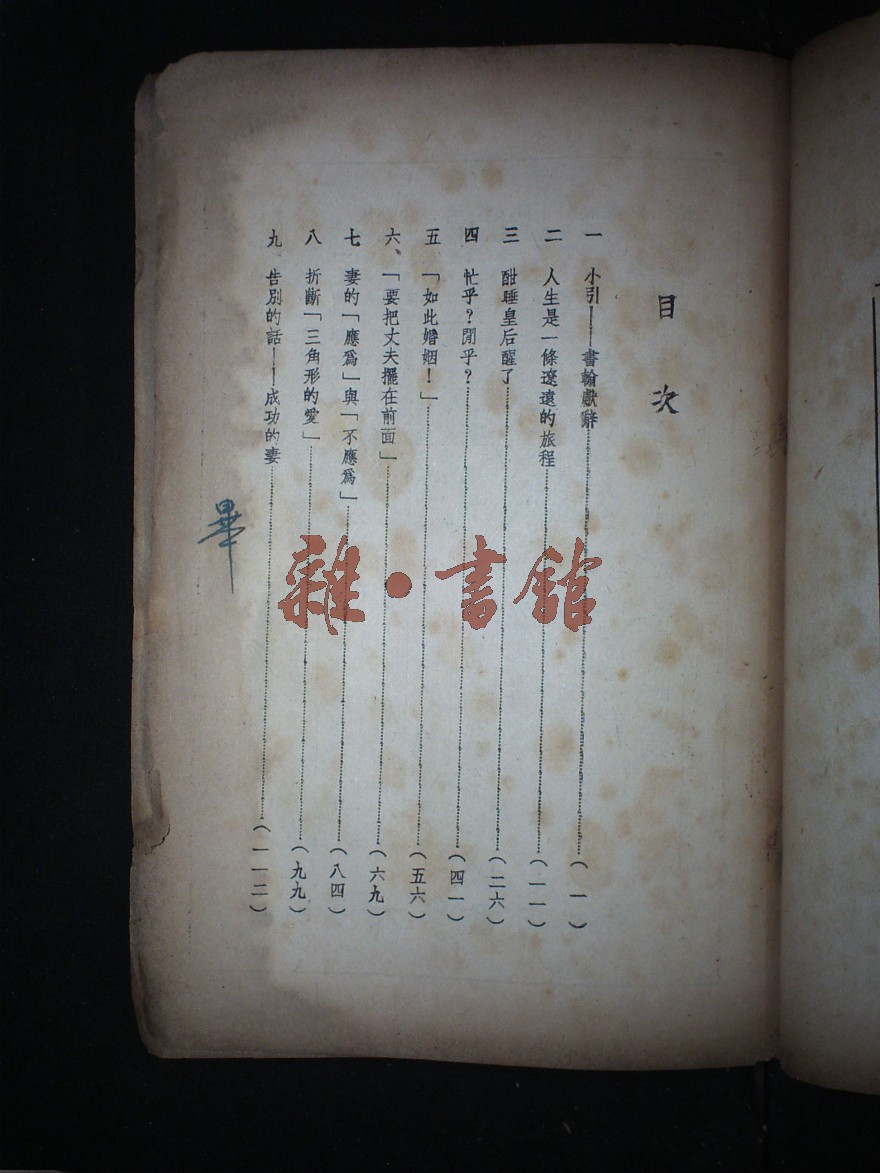 目次
一 小引——書翰獻辭……(一)
二 人生是一條遼遠的旅程……(一一)
三 酣睡皇后醒了……(二六)
四 忙乎？閒乎？……(四一)
五 「如此婚姻！」……(五六)
六、「要把丈夫擺在前面」……(六九)
七 妻的「應爲」與「不應爲」……(八四)
八 折斷「三角形的愛」……(九九)
九 告別的話——成功的妻……(一一二)
畢
雜·書館